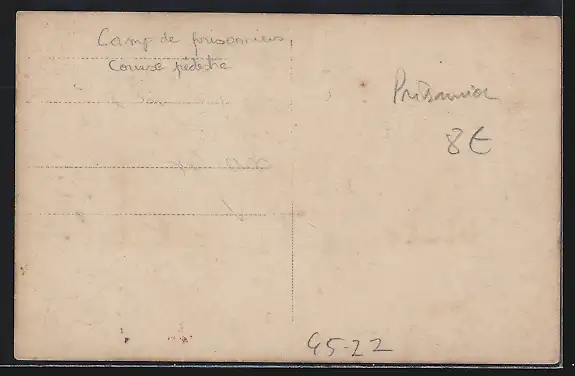 Camp de prisonniers
Course pédestre
Prisonnier
8€
45-22